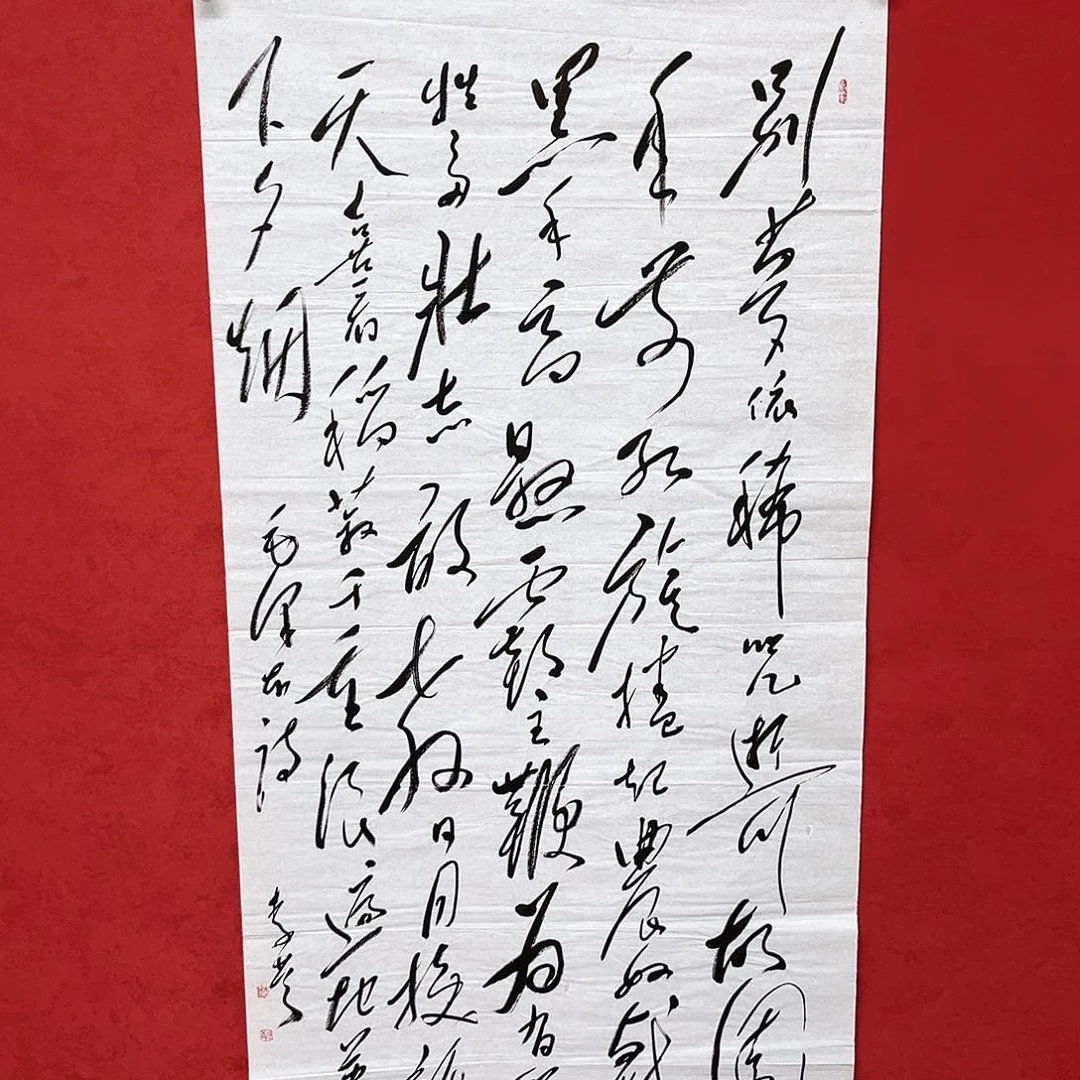 别夢依稀咒逝川故園
年前紅旗捲起農奴戟
黑手高懸霸主鞭为有
牲多壮志敢教日月换新
天喜看稻菽千重浪遍地英
下夕烟
毛泽东詩
李